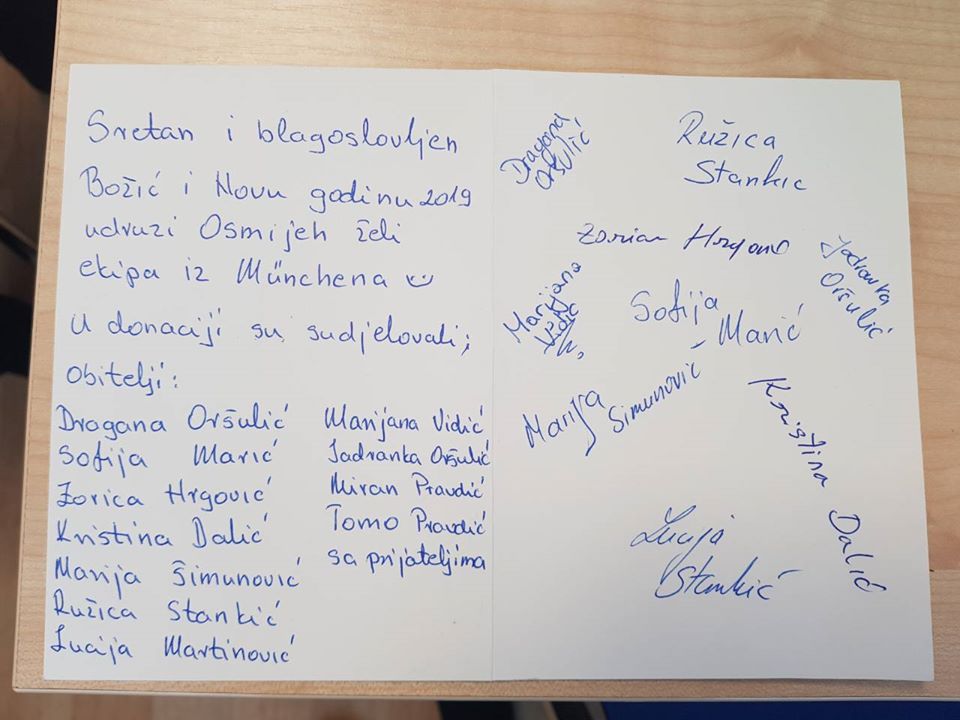 Sretan i blagoslovljen
Božić i Novu godinu 2019
udruzi Osmijeh želi
ekipa iz Münchena
U donaciji su sudjelovali;
obitelji:
Dragana Oršulić
Sofija Marić
Zorica Hrgović
Kristina Dalić
Marija Šimunović
Ružica Stankić
Lucija Martinović
Marijana Vidić
Jadranka Oršulić
Miran Pravdić
Tomo Pravdić
sa prijateljima
Dragana
Oršulić
Ružica
Stankic
Jadranka
Oršulić
Marijana
Vidić
Sofija
Marić
Marija
Simunović
Kristina
Dalić
Lucija
Stankić